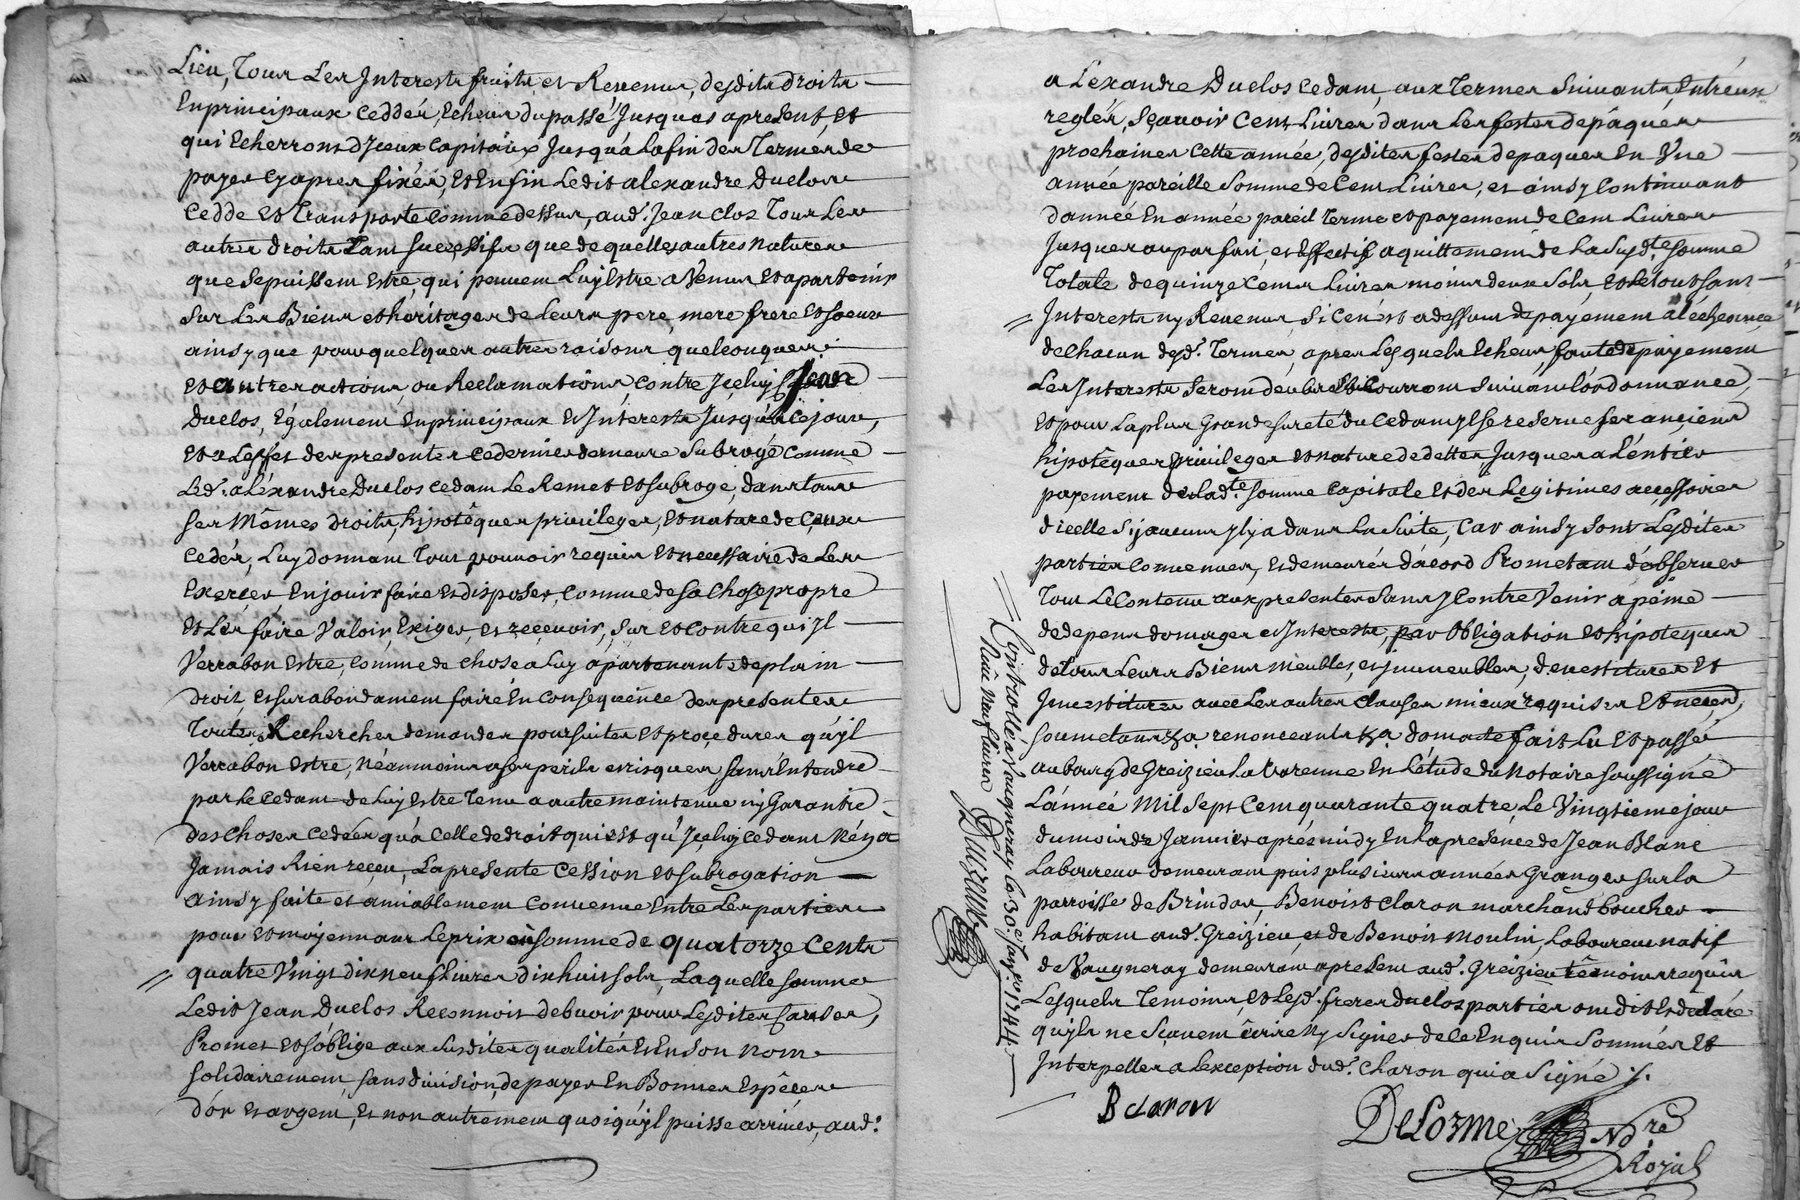 Lieu, Tous Les Interests fruits et Revenus, desdits droits
En principaux ceddés, Echeus du passé Jusques apresent, et
qui Echerront d'Iceux capitaux Jusqu'a La fin des Termes de
payer cy apres fixés, Et Enfin Ledit alexandre Duclos
Cedde Et Transporte comme dessus, aud. Jean cloz Tous Les
autres droits Tant successifs que de quelles autres natures
que se puissent Estre, qui peuvent Luy Estre avenus Et apartenir
Sur Les Biens et héritages de Leurs pere, mere frere Et soeur
ainsy que pour quelques autres raisons quelconques
Et autres actions, ou Reclamations contre Jceluy Jean
Duclos, Également En principaux Et Intérests Jusqu'à ce jour,
Et a L'effet des presentes ce dernier demeure Subrogé comme
Led. aléxandre Duclos cedant Le Remet Et subroge, dans tous
ses Mêmes droits, hipotêques privileges, Et nature de Ceux
cedés, Luy donnant Tout pouvoir requis Et necessaire de Les
Exercer, En jouir faire Et disposer, comme de sa chose propre
Et Les faire Valoir, Exiger, et recevoir, sur Et contre qui Jl
Verra bon Estre, comme de chose a Luy apartenante de plain
droit, Et surabondament faire En consequence des presentes
Toutes Recherches demandes poursuites Et procedures qu'yl
Verra bon Estre, Néanmoins a ses perils et risques sans Entendre
par Le Cedant de Luy Estre Tenu a autre maintenue ny Garantie
des choses cedées qu'a celle de droit qui est qu'Jceluy cedant N'en a
Jamais Rien reçeu, La presente Cession Et subrogation
ainsy faite et amiablement Convenue Entre Les parties
pour Et moyennant Le prix et somme de quatorze Cents
quatre Vingt dix neuf Livres dix huit sols, Laquelle somme
Ledit Jean Duclos Reconnoit debvoir pour Lesdites causes,
Promet Et s'oblige aux susdites qualités Et En son nom
solidairement, sans division, de payer En Bonnes Espêces
d'or Et argent, Et non autrement quoiqu'yl puisse arriver, aud.
aLexandre Duclos cedant, aux Termes Suivants, Entreux
reglés, Sçavoir Cent Livres dans Les festes de pâques
prochaines cette année, desdites festes de paques En Vne
année pareille somme de Cent Livres, et ainsy Continuant
d'année En année pareil Terme et payement de Cent Livres
Jusques au parfait, et Effectif aquittement de La susd.te somme
Totale de quinze Cents Livres moins deux sols, Et Le tout sans
Interests ny Revenus, Si Ce n'est a deffaut de payement a l'écheance
de chacun desd. Termes, apres Lesquels Echeus, faute de payement
Les Interests seront deubs Et Courront suivant L'ordonnance,
Et pour La plus Grande sureté du Cedant, yl se reserve ses anciens
hipotêques privileges Et nature de dettes Jusques a L'entier
payement de Lad.te somme Capitale Et des Legitimes accessoires
d'icelle Si aucuns yl y a dans La Suite, Car ainsy sont Lesdites
parties Convenues, Et demeurés d'acord Prometant d'observer
Tout Le Contenu aux presentes sans y Contrevenir a peine
de depens domages et Interests, par obligation Et hipoteques
de tous Leurs Biens meubles, et immeubles, devestitures Et
Jnvestitures avec Les autres clauses mieux requises Et neces.
soumetants &a. renonceants &a. dont acte fait Lu Et passé
au bourg de Greizieu La Varenne En L'étude du Notaire soussigné
L'année Mil Sept Cent quarante quatre, Le Vingtieme jour
du mois de Janvier aprés midy En La presence de Jean Blanc
Laboureur demeurant puis plusieurs années Granger sur la
parroisse de Brindas, Benoist Claron marchand boucher
habitant aud. Greizieu, et de Benoit Moulin, Laboureur natif
de Vaugneray demeurant a present aud. Greizieu têmoins requis
Lesquels Temoins, Et Lesd. freres Duclos parties ont dit Et declaré
qu'yls ne sçavent êcrire ny signer de ce Enquis Sommés Et
Interpellés a L'exception dud. Charon qui a signé ./.
B claron
DeLorme No.re
Royal
Controllé a Vaugneray le 30e. Janv. 1744.
Neuf Livres